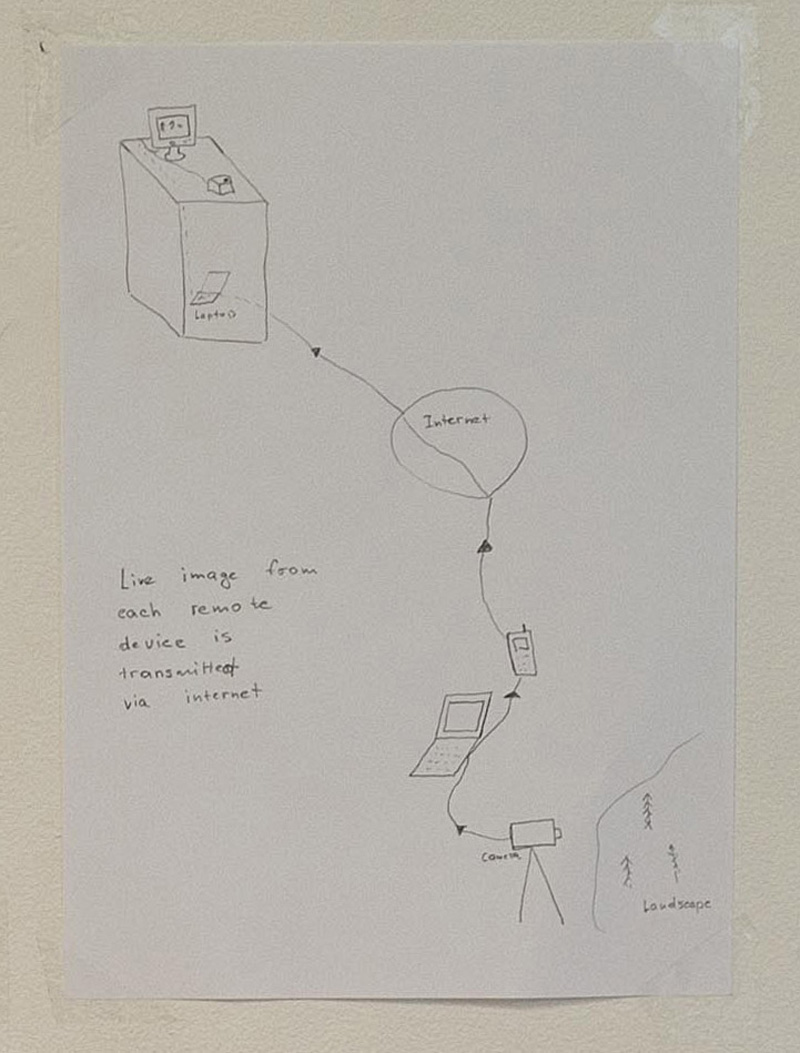 Laptop
Internet
Live image from
each remote
device is
transmitted
via internet
Camera
Landscape